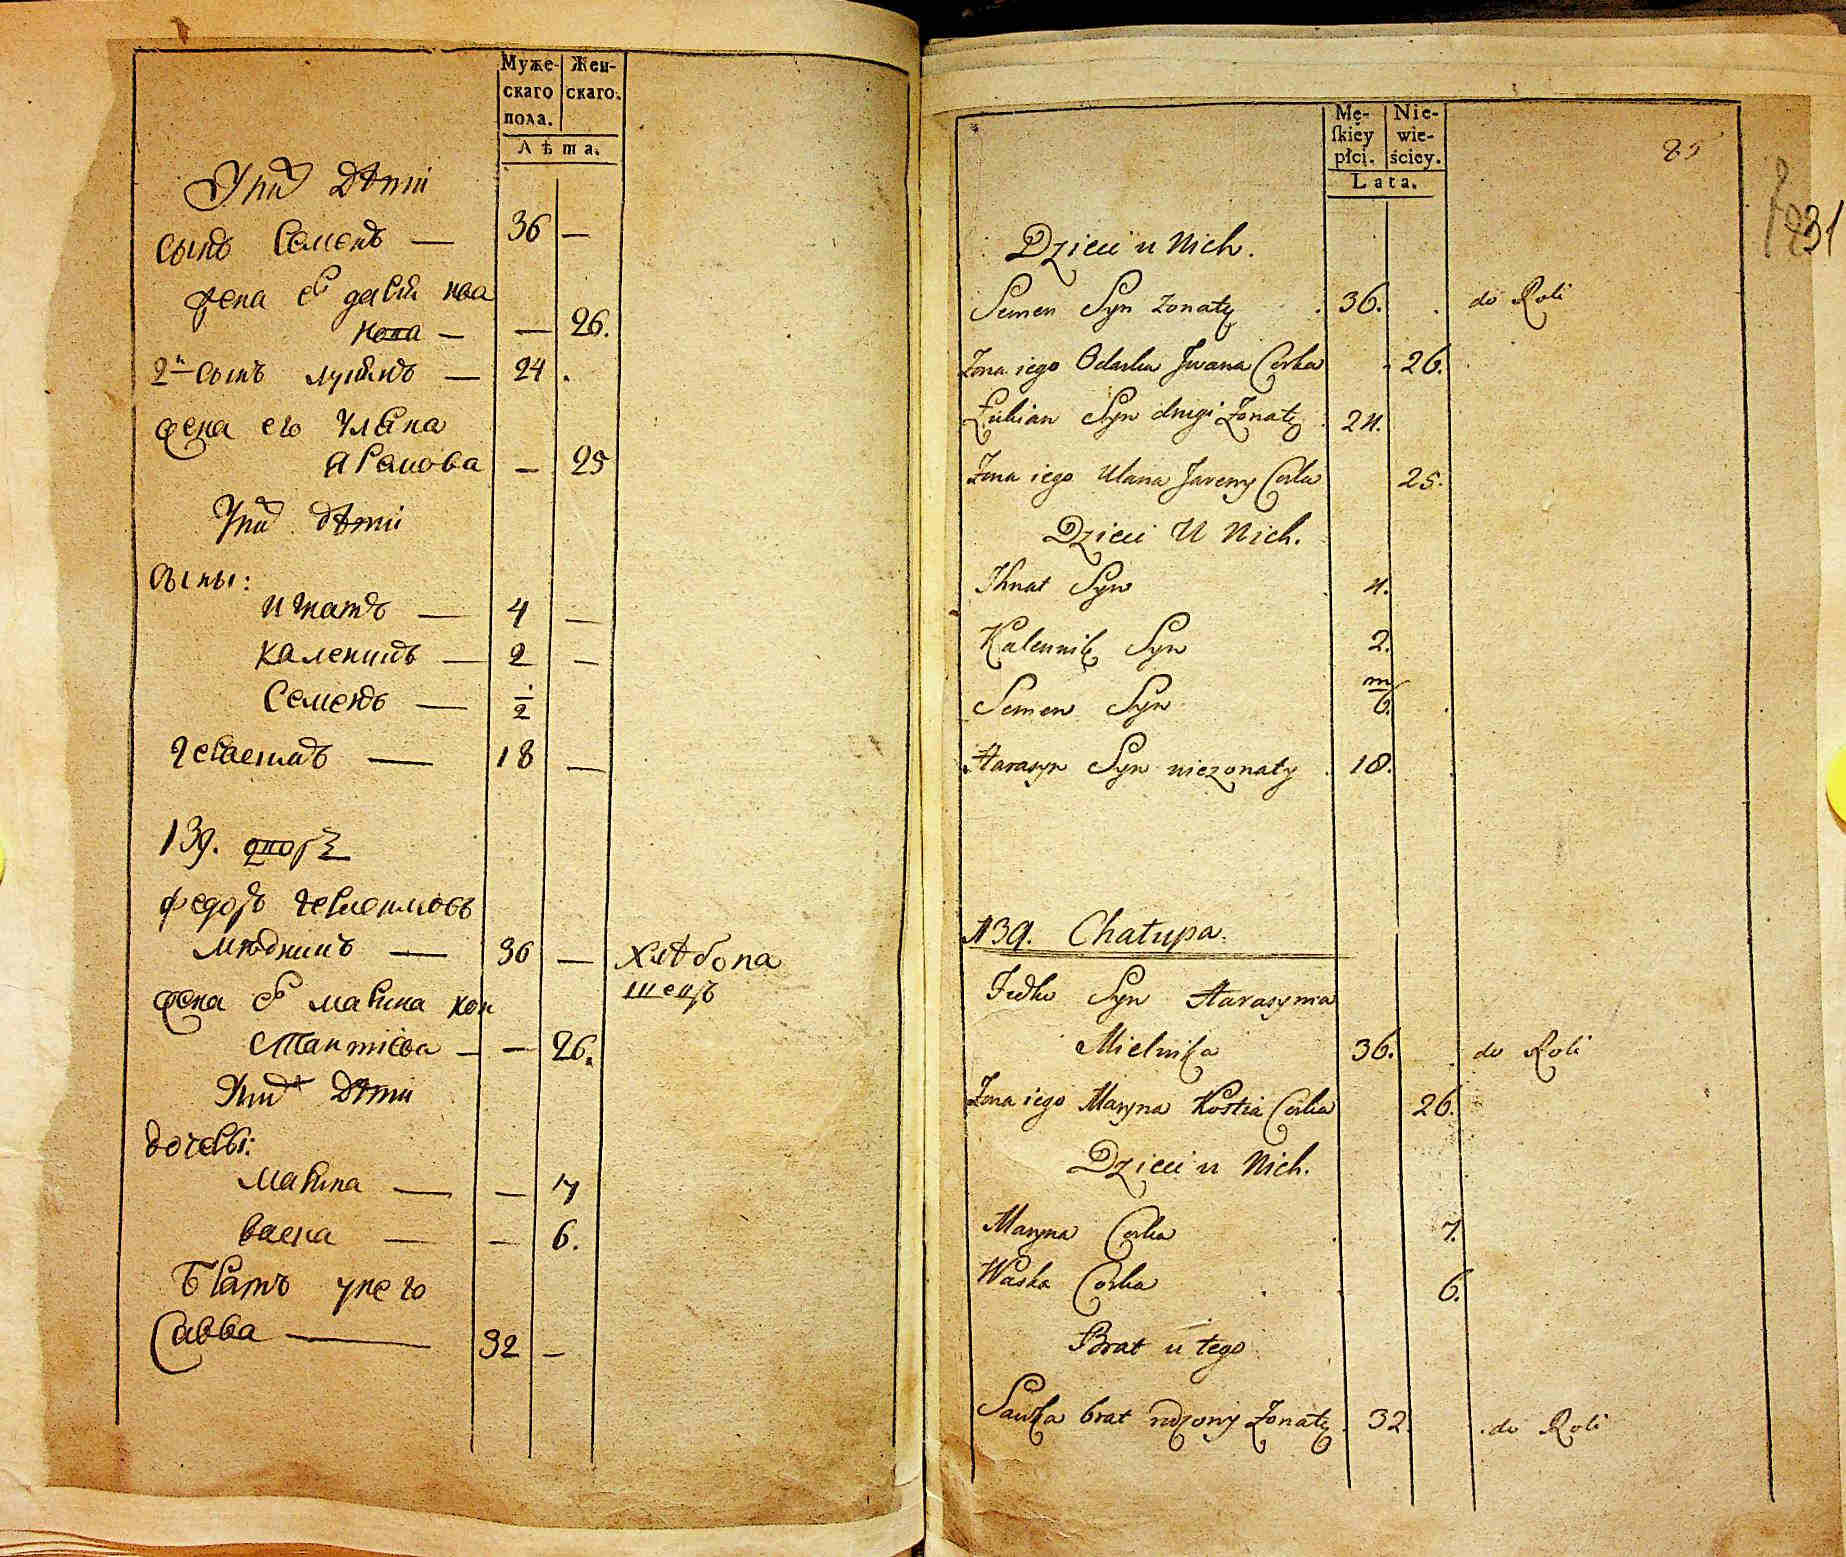 Муже-
скаго
пола.
Жен-
скаго.
Лѣта.
Унихъ дѣти
сынъ Семенъ — 36 —
жена его
— — 26.
2й сынъ лукянъ — 24 .
жена его Уляна
— 25
Унихъ дѣти
сыны:
игнатъ — 4 —
каленикъ — 2 —
Семенъ — 1/2
18 —
139.
федоръ
мѣлникъ — 36 — хлѣбопа
шецъ
жена его марина кон
стантиева — — 26.
Унихъ дѣти
дочери:
марина — — 7
васка — — 6.
братъ унего
Савва — 32 —
Mę-
skiey
płci.
Nie-
wie-
ściey.
Lata.
85
231
Dzieci u Nich.
Semen Syn żonaty . 36. . do Roli
Żona iego Odarka Jwana Corka . 26.
Łukian Syn drugi Żonaty 24.
Żona iego Ulana Jaremy Corka 25.
Dzieci U Nich.
Ihnat Syn . 4.
Kalennik Syn 2.
Semen Syn m/6. .
Harasym Syn nieżonaty . 18.
139. Chałupa.
Fedko Syn Harasyma
Mielnika 36. . do Roli
Żona iego Maryna Kostia Corka 26.
Dzieci u Nich.
Maryna Corka . 7.
Waska Corka . . 6.
Brat u tego
Sawka brat rodzony Żonaty . 32. . do Roli